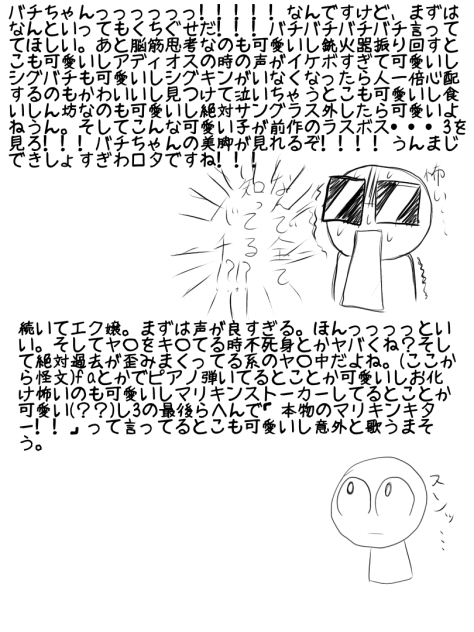 バチちゃんっっっっっっっ！！！！！なんですけど、まずは
なんといってもくちぐせだ！！！バチバチバチバチ言って
てほしい。あと脳筋思考なのも可愛いし銃火器振り回すと
こも可愛いしアディオスの時の声がイケボすぎて可愛いし
シグバチも可愛いしシグキンがいなくなったら人一倍心配
するのもかわいいし見つけて泣いちゃうとこも可愛いし食
いしん坊なのも可愛いし絶対サングラス外したら可愛いよ
ねうん。そしてこんな可愛い子が前作のラスボス・・・3を
見ろ！！！バチちゃんの美脚が見れるぞ！！！！うんまじ
できしょすぎわロタですね！！！
怖い…
続いてエク嬢。まずは声が良すぎる。ほんっっっっっとい
い。そしてヤ〇をキ〇てる時不死身とかヤバくね？そし
て絶対過去が歪みまくってる系のヤ〇中だよね。(ここか
ら怪文)faとかでピアノ弾いてるとことか可愛いしお化
け怖いのも可愛いしマリキンストーカーしてるとことか
可愛い(??)し3の最後らへんで『本物のマリキンキタ
ー！！』って言ってるとこも可愛いし意外と歌うまそ
う。
スンッ…